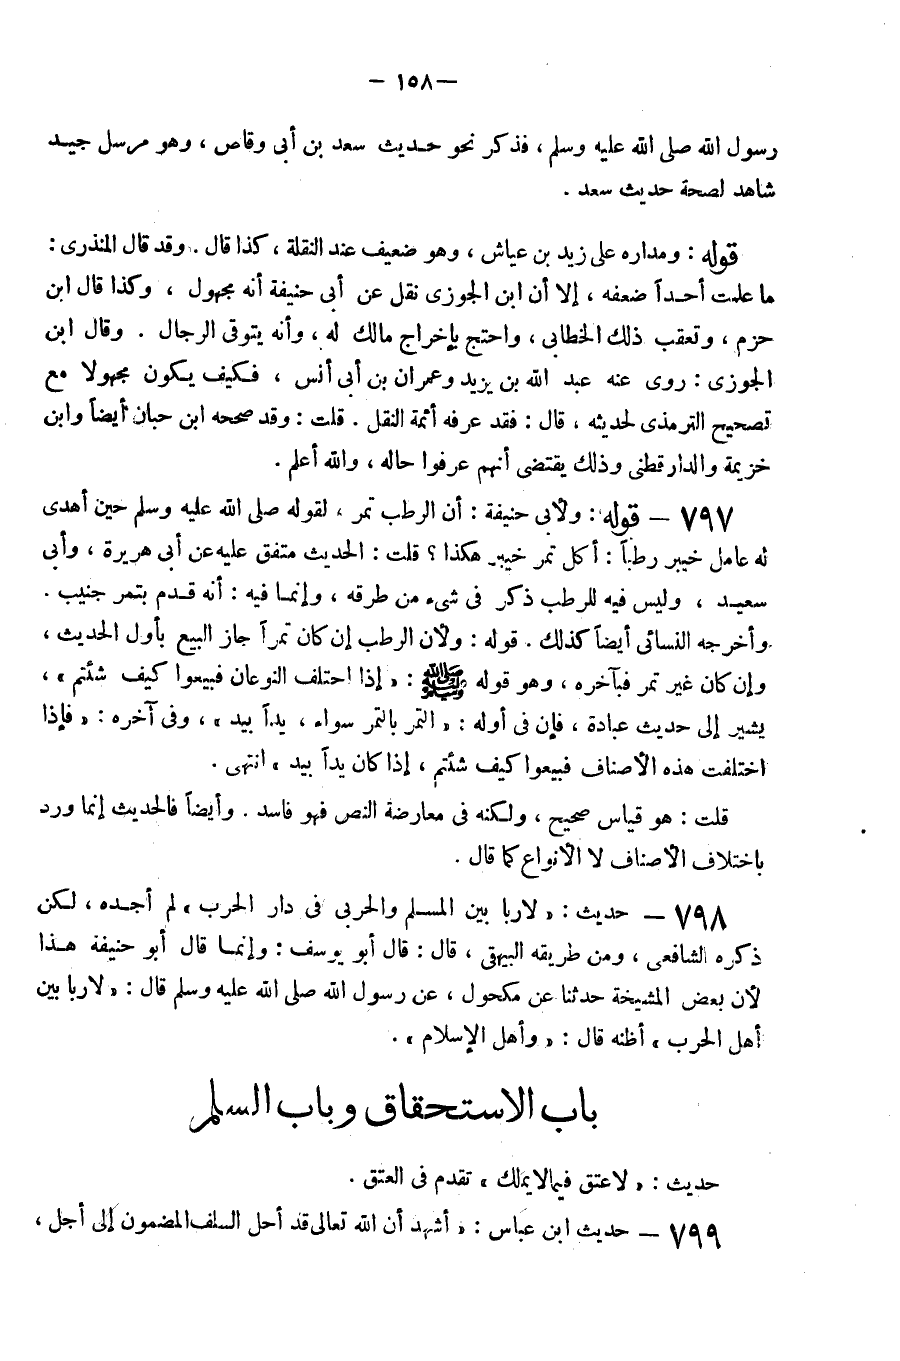 — ١٥٨ —
رسول الله صلى الله عليه وسلم ، فذكر نحو حديث سعد بن أبى وقاص ، وهو مرسل جيد
شاهد لصحة حديث سعد .
قوله : ومداره على زيد بن عياش ، وهو ضعيف عند النقلة ، كذا قال . وقد قال المنذرى :
ما علمت أحداً ضعفه ، إلا أن ابن الجوزى نقل عن أبى حنيفة أنه مجهول ، وكذا قال ابن
حزم ، وتعقب ذلك الخطابى ، واحتج بإخراج مالك له ، وأنه يتوقى الرجال . وقال ابن
الجوزى : روى عنه عبد الله بن يزيد وعمران بن أبى أنس ، فكيف يكون مجهولا مع
تصحيح الترمذى لحديثه ، قال : فقد عرفه أئمة النقل . قلت : وقد صححه ابن حبان أيضاً وابن
خزيمة والدارقطنى وذلك يقتضى أنهم عرفوا حاله ، والله أعلم .
٧٩٧ — قوله : ولأبى حنيفة : أن الرطب تمر ، لقوله صلى الله عليه وسلم حين أهدى
له عامل خيبر رطباً : أكل تمر خيبر هكذا ؟ قلت : الحديث متفق عليه عن أبى هريرة ، وأبى
سعيد ، وليس فيه للرطب ذكر فى شىء من طرقه ، وإنما فيه : أنه قدم بتمر جنيب .
وأخرجه النسائى أيضاً كذلك . قوله : ولأن الرطب إن كان تمراً جاز البيع بأول الحديث ،
وإن كان غير تمر فبآخره ، وهو قوله ﷺ : « إذا اختلف النوعان فبيعوا كيف شئتم » ،
يشير إلى حديث عبادة ، فإن فى أوله : « التمر بالتمر سواء ، يداً بيد » ، وفى آخره : « فإذا
اختلفت هذه الأصناف فبيعوا كيف شئتم ، إذا كان يداً بيد » انتهى .
قلت : هو قياس صحيح ، ولكنه فى معارضة النص فهو فاسد . وأيضاً فالحديث إنما ورد
باختلاف الأصناف لا الأنواع كما قال .
٧٩٨ — حديث : « لاربا بين المسلم والحربى فى دار الحرب » لم أجده ، لكن
ذكره الشافعى ، ومن طريقه البيهقى ، قال : قال أبو يوسف : وإنما قال أبو حنيفة هذا
لأن بعض المشيخة حدثنا عن مكحول ، عن رسول الله صلى الله عليه وسلم قال : « لاربا بين
أهل الحرب » أظنه قال : « وأهل الإسلام » .
باب الاستحقاق وباب السلم
حديث : « لاعتق فيما لا يملك » تقدم فى العتق .
٧٩٩ — حديث ابن عباس : « أشهد أن الله تعالى قد أحل السلف المضمون إلى أجل ،